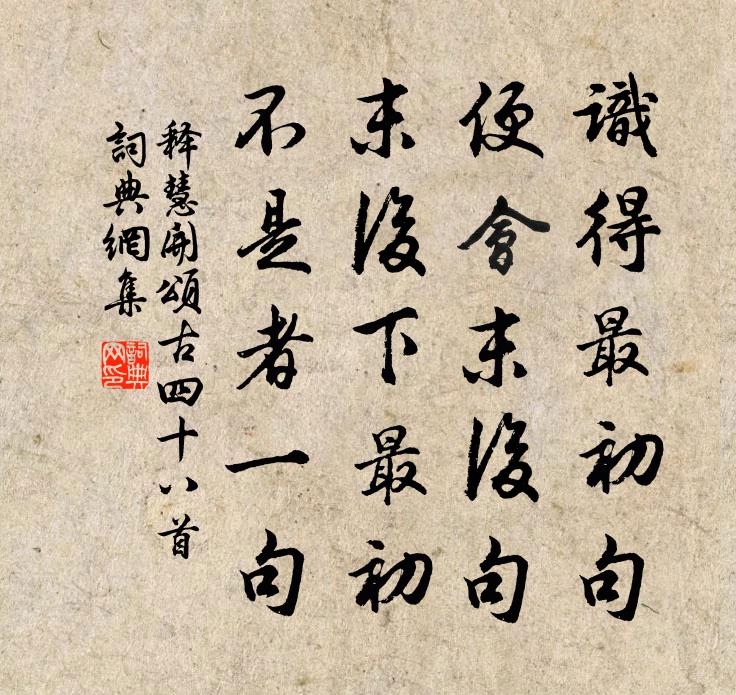 識得最初句
便會末後句
末後下最初
不是者一句
释慧開頌古四十八首
詞典網集
詞典
网印